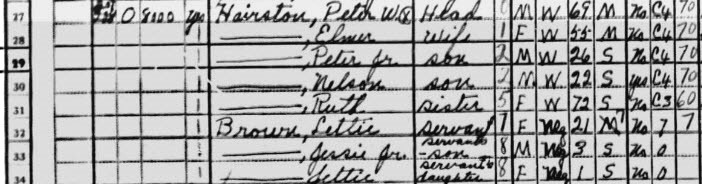 27 O 8000 yes Hairston, Peter W Head 0 M W 69 M No C4 70
28 ———, Elmer Wife 1 F W 55 M No C4 70
29 ———, Peter Jr. son 2 M W 26 S No C4 70
30 ———, Nelson son 2 M W 22 S yes C4 70
31 ———, Ruth sister 5 F W 72 S No C3 60
32 Brown, Lettie servant 7 F Neg 21 M No 7 7
33 ———, Jessie Jr. servant's son 8 M Neg 3 S No 0
34 ———, Lettie servant's daughter 8 F Neg 1 S No 0